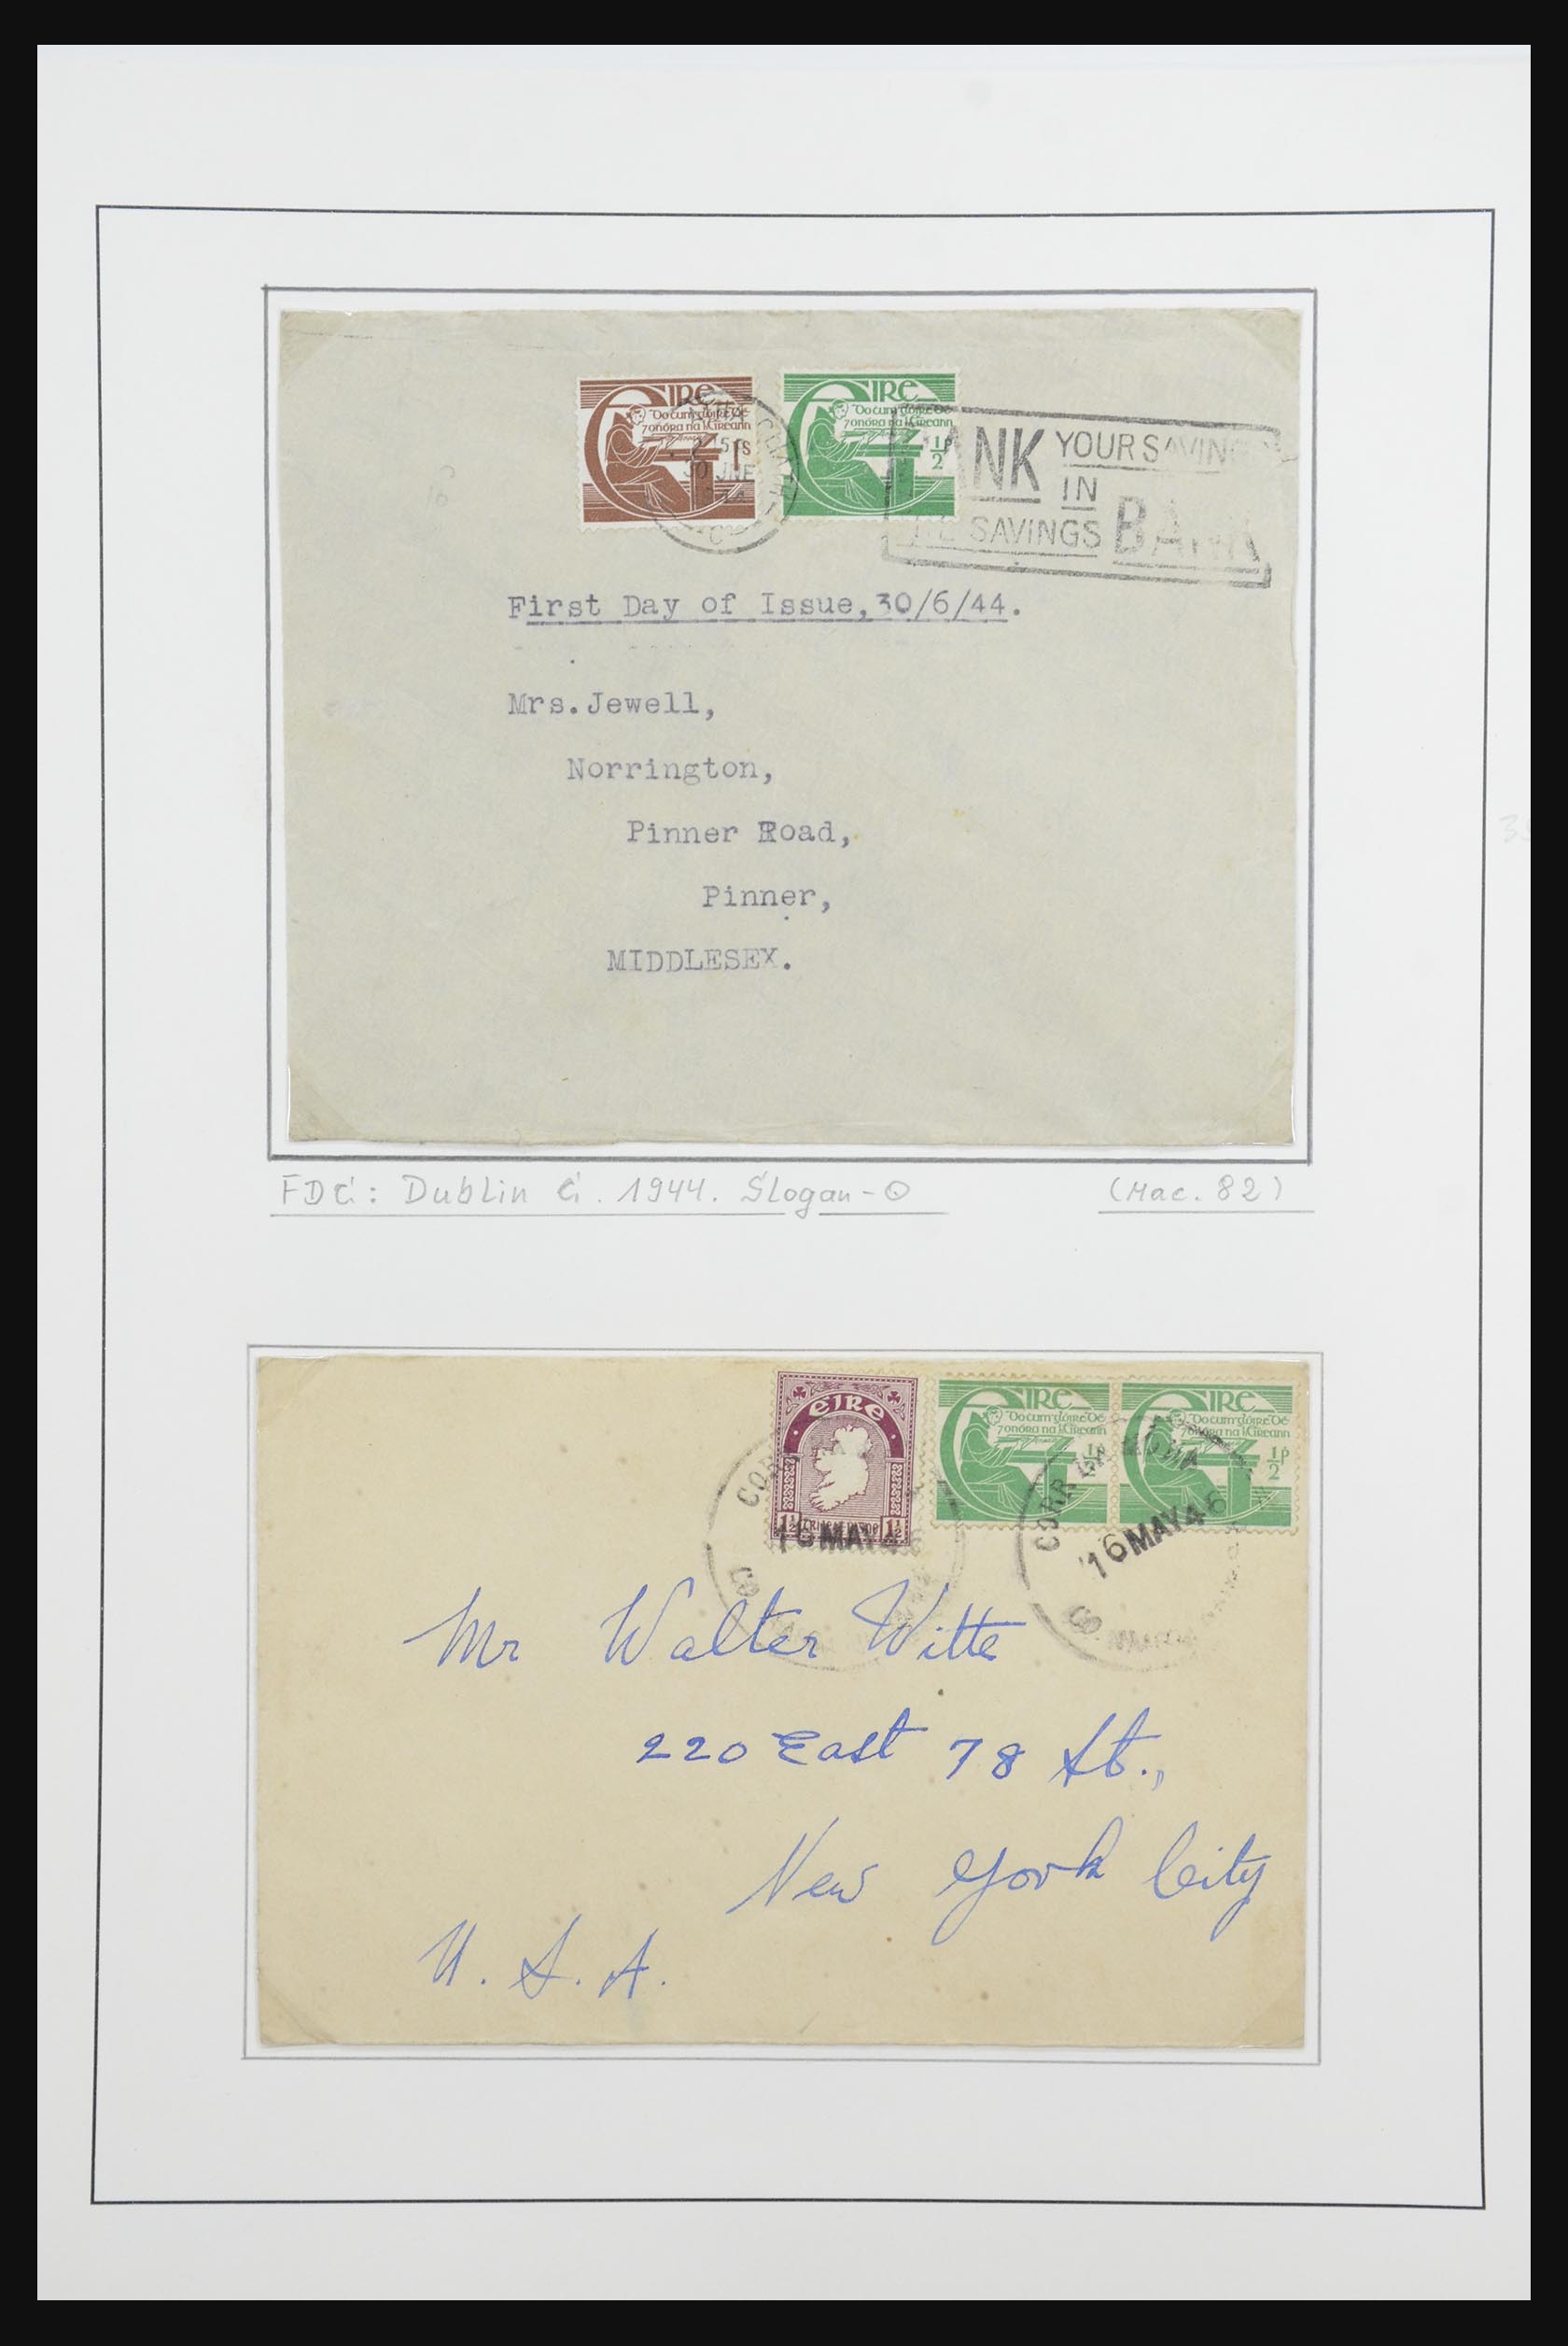 EIRE
Do cum glóire Dé
7 onóra na hÉireann
1s
EIRE
Do cum glóire Dé
7 onóra na hÉireann
½p
30 JNE
YOUR SAVINGS
IN
SAVINGS BANK
First Day of Issue,30/6/44.
Mrs.Jewell,
Norrington,
Pinner Road,
Pinner,
MIDDLESEX.
FDC: Dublin C. 1944. Slogan-O (Mac. 82)
EIRE
1½ 1½
EIRE
Do cum glóire Dé
7 onóra na hÉireann
½p
EIRE
Do cum glóire Dé
7 onóra na hÉireann
½p
16 MAY 46
CORR
16 MAY 46
CO.
Mr Walter Witte
220 East 78 St.,
New York City
U. S. A.